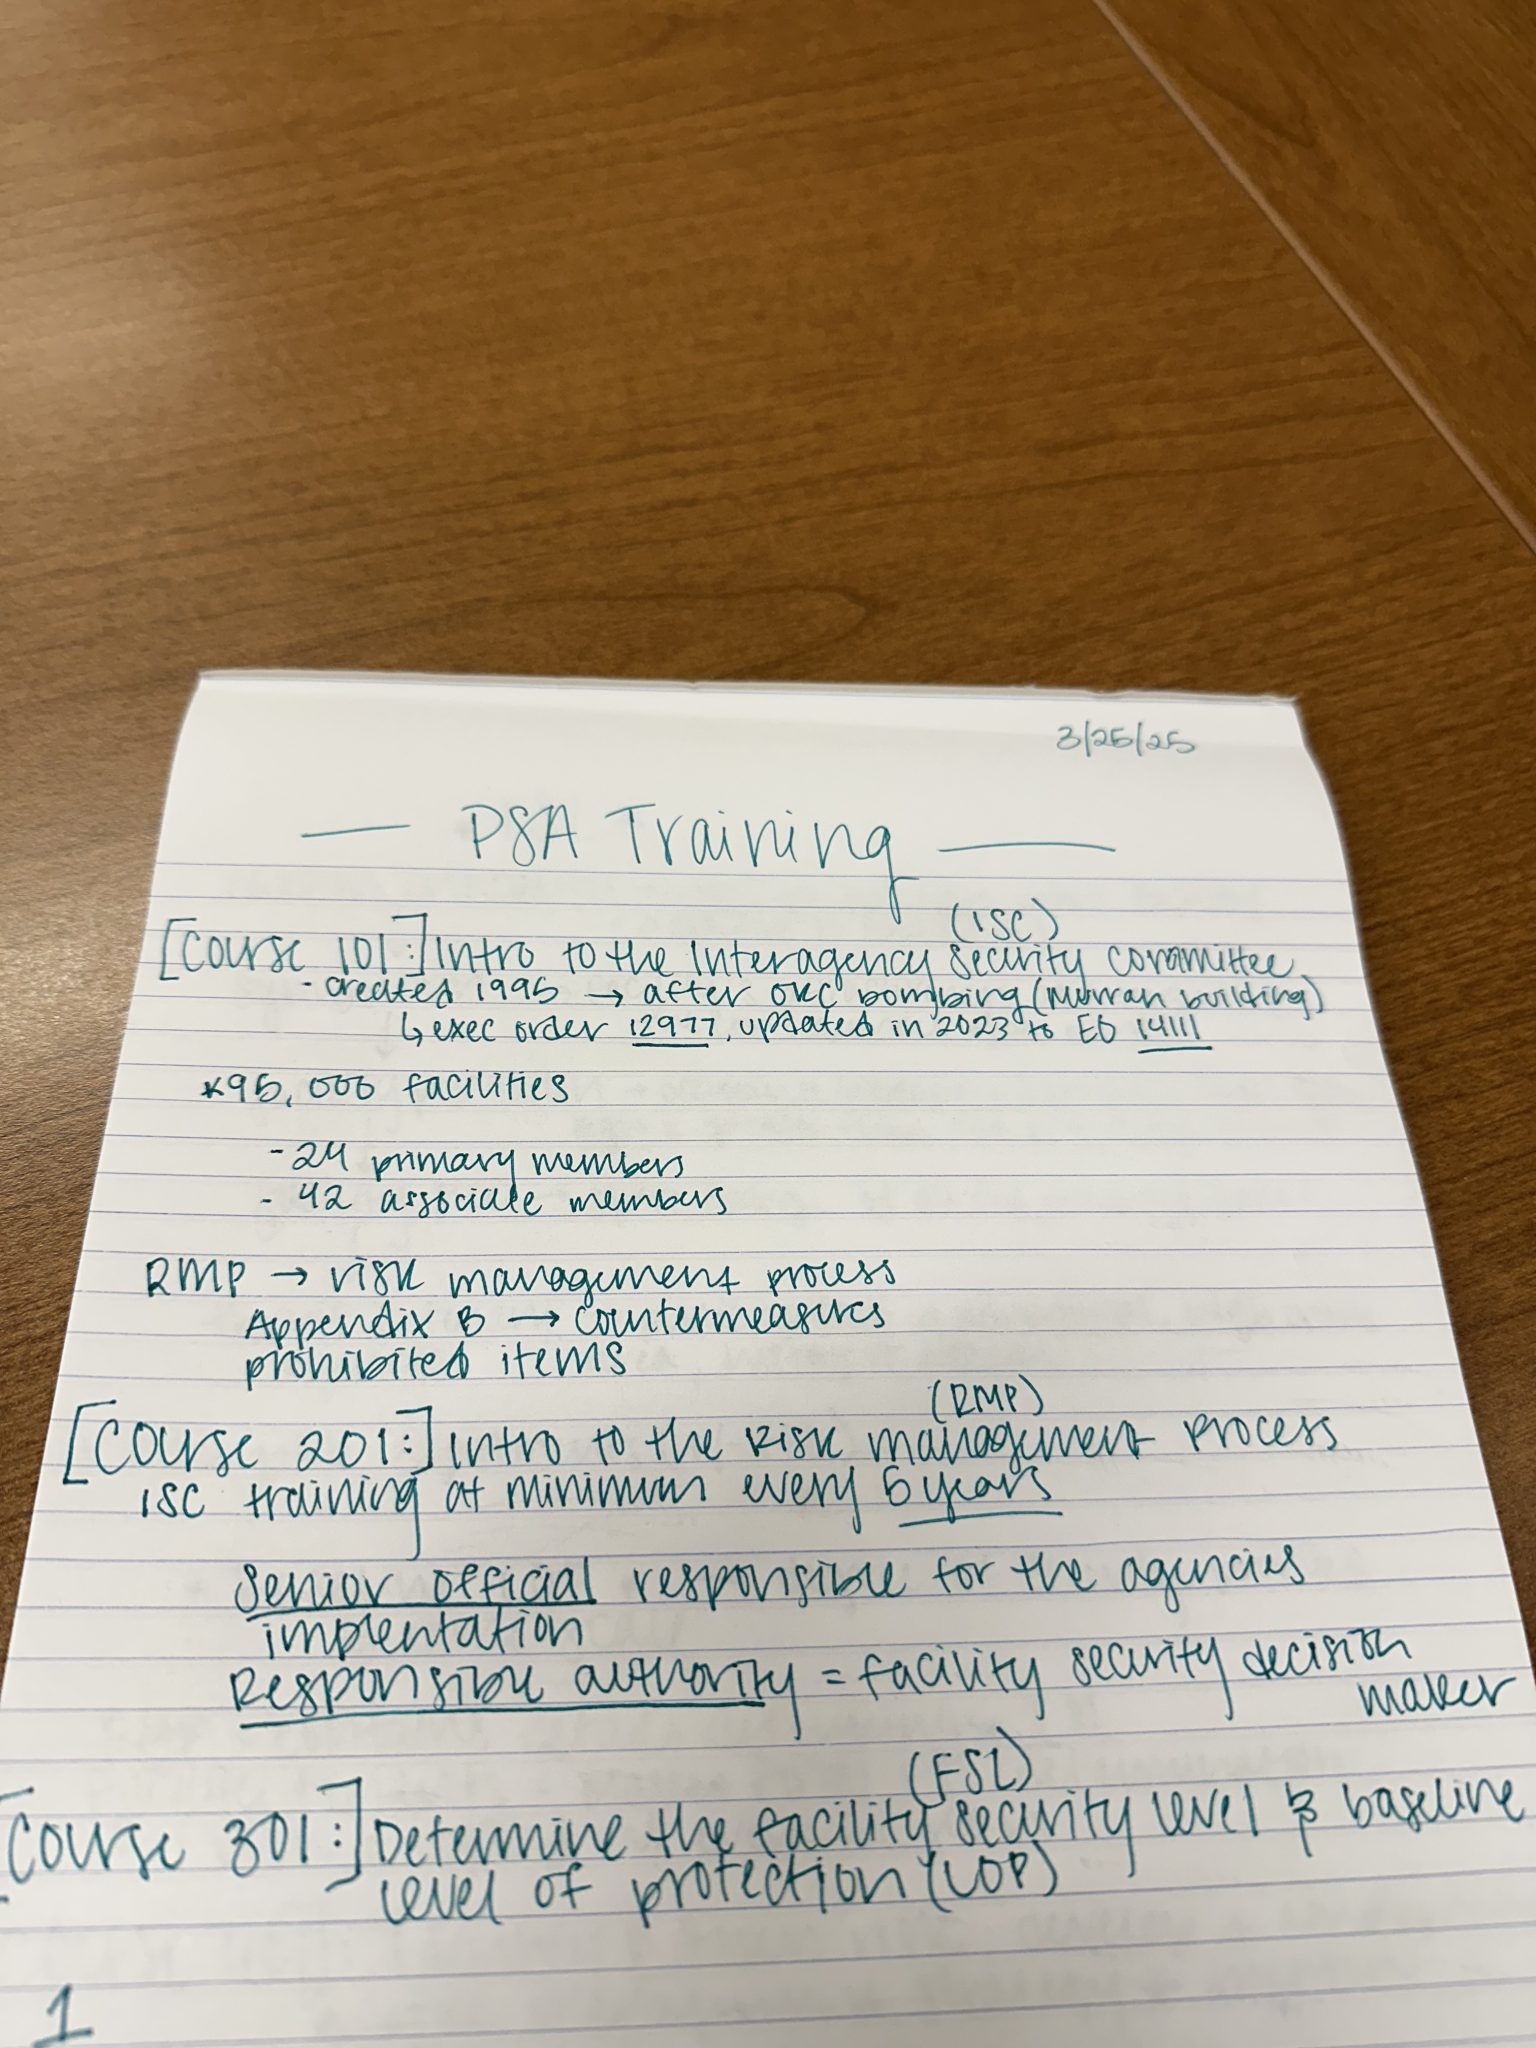 3/25/25
— PSA Training —
(ISC)
[Course 101:] Intro to the Interagency Security Committee
- created 1995 → after OKC bombing (Murrah building)
↳ exec order 12977, updated in 2023 to EO 14111
*95,000 facilities
- 24 primary members
- 42 associate members
RMP → risk management process
Appendix B → countermeasures
prohibited items
(RMP)
[Course 201:] Intro to the Risk management process
ISC training at minimum every 5 years
Senior official responsible for the agencies
implentation
Responsible authority = facility security decision
maker
(FSL)
[Course 301:] Determine the facility security level & baseline
level of protection (LOP)
1